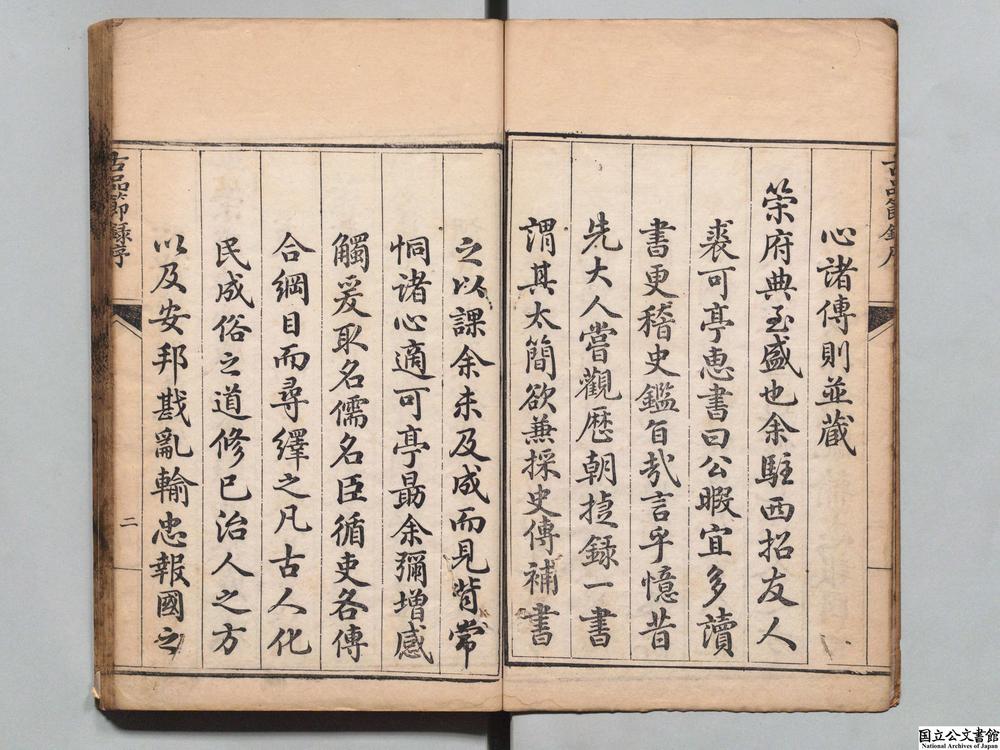 心諸傳則並藏
榮府典至盛也余駐西招友人
裘可亭惠書曰公暇宜多讀
書更稽史鑑旨哉言乎憶昔
先大人嘗觀歷朝捷録一書
謂其太簡欲兼採史傳補書
之以課余未及成而見背常
恫諸心適可亭勗余彌增感
觸爰取名儒名臣循吏各傳
合綱目而尋繹之凡古人化
民成俗之道修已治人之方
以及安邦戡亂輸忠報國之
古品節録序
二
国立公文書館
National Archives of Japan